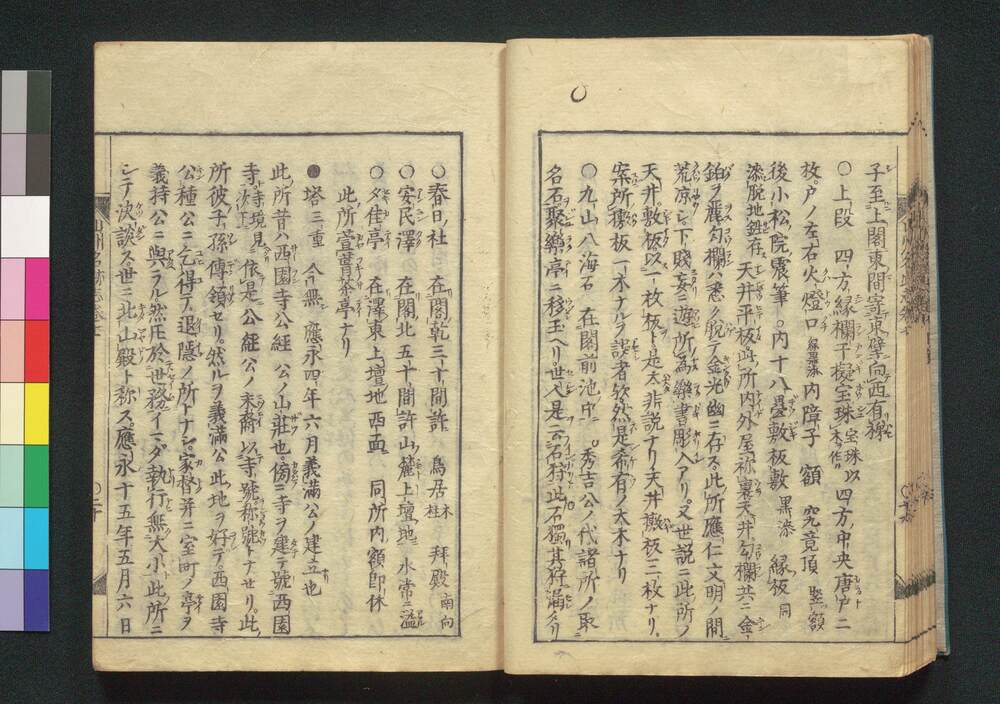 子至上閣東間寄東壁向西有梯
○上段 四方縁欄干擬宝珠 宝珠以木作 四方ノ中央唐戸二
枚戸ノ左右火燈口 縁黒漆 内障子 額 究竟頂 竪額
後小松院震筆。内十八畳敷板敷 黒漆 縁板 同
漆脱地鉛存 天井平板此所内外屋祢裏天井勾欄共ニ金
鉑ヲ麗勾欄ハ悉ク脱テ金光幽ニ存ル此所應仁文明ノ間
荒凉シ下賤妄ニ遊所為樂書彫入アリ。又世説ニ此所ノ
天井敷板以一枚板ト是太非説ナリ天井敷板三枚ナリ。
案所榜板一木ナルヲ訣者欤然是希有ノ大木ナリ
○九山八海石 在閣前池中。秀吉公ノ代諸所ノ取
名石聚樂亭ニ移玉ヘリ。世人是云石狩此石獨其狩漏タリ
○春日社 在閣乾三十間許 鳥居 木柱 拝殿 南向
○安民澤 在閣北五十間許山麓上壇地 水常ニ溢
○夕佳亭 在澤東上壇地西面 同所内額即休
此所萱葺茶亭ナリ
●塔三重 今無 應永四年六月義満公ノ建立也
此所昔ハ西園寺公経公ノ山荘也。傍ニ寺ヲ建テ號西園
寺 寺境見次下 依是公経公ノ末裔以寺號称號トナセリ。此
所彼子孫傳領セリ。然ルヲ義満公此地ヲ好テ西園寺
公種公ニ乞得テ退隠ノ所トナシ。家督并ニ室町ノ亭ヲ
義持公ニ與ラル然圧於世務イマダ執行無大小此所ニ
シテ決談ス。世ニ北山殿ト称ス應永十五年五月六日
山州名跡志巻七
○二十